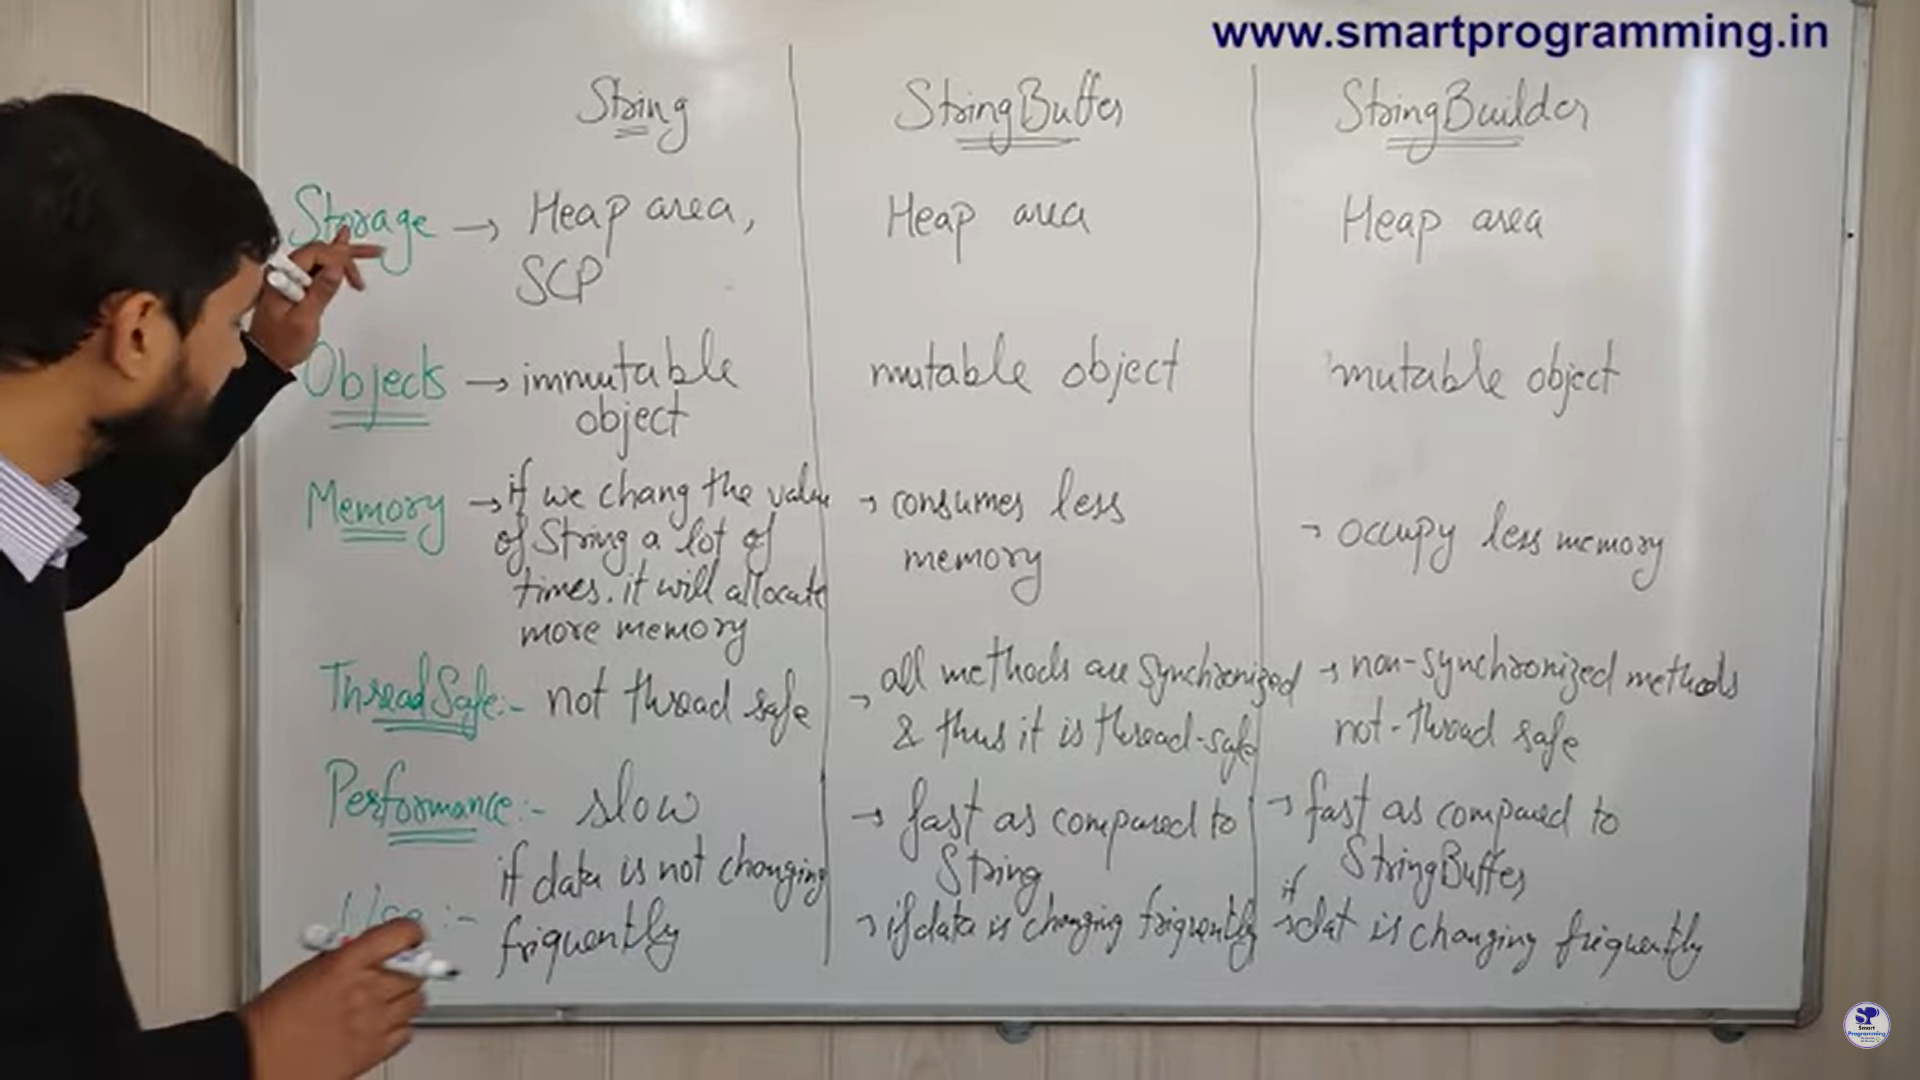 www.smartprogramming.in
String
StringBuffer
StringBuilder
Storage → Heap area,
SCP
Heap area
Heap area
Objects → immutable
object
mutable object
mutable object
Memory → if we chang the value
of String a lot of
times. it will allocate
more memory
→ consumes less
memory
→ occupy less memory
ThreadSafe:- not thread safe
→ all methods are synchronized
& thus it is thread-safe
→ non-synchronized methods
not-thread safe
Performance:- slow
→ fast as compared to
String
→ fast as compared to
StringBuffer
Use :- if data is not changing
friquently
→ if data is changing friquently
→ if dat is changing friquently
SP
Smart
Programming